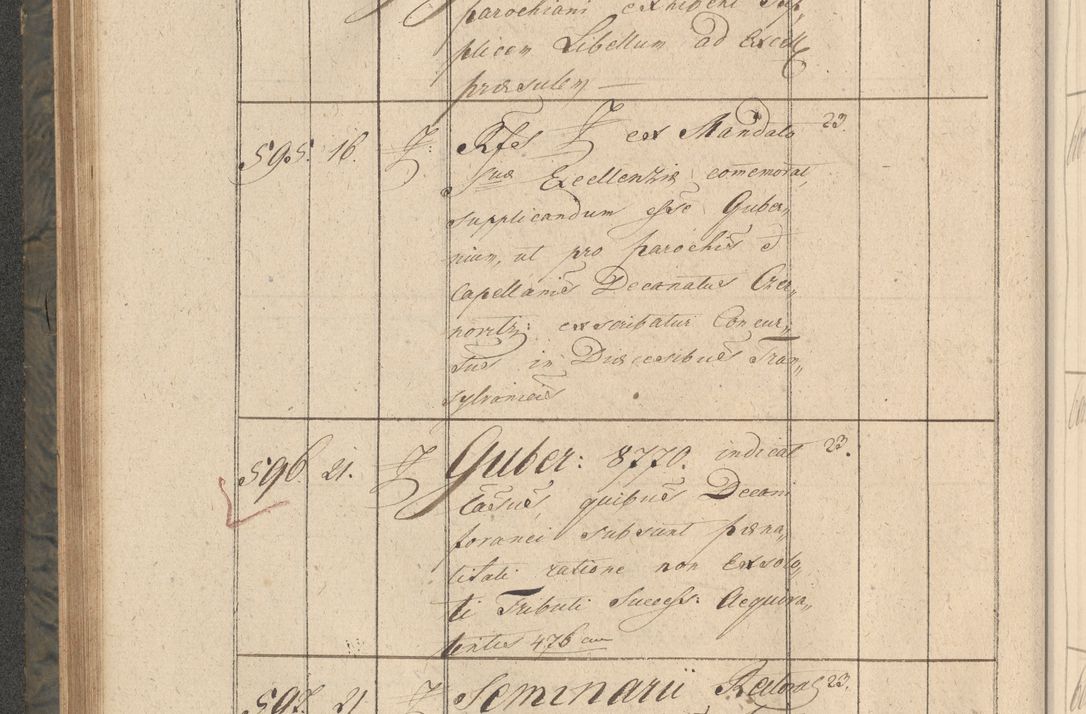 parochiani exhibent sup„
plicem Libellum ad Excell
præsulem —
595. 16. J: Rfs J ex Mandato 23.
Suæ Excellentiæ comemorat,
supplicandum esse Guber„
nium, ut pro parochis et
Capellanis Decanatus Czer„
novitz: exscribatur Concur„
sus in Diœcesibus Tran„
sylvanicis
596. 21. J Guber: 8770. indicat 23.
Casus, quibus Decani
foranei subsunt pœna„
litati ratione non Exsolu„
ti Tributi Success: Aequiva„
lentis 476
597. 21. J Seminarii Rectorat 23.